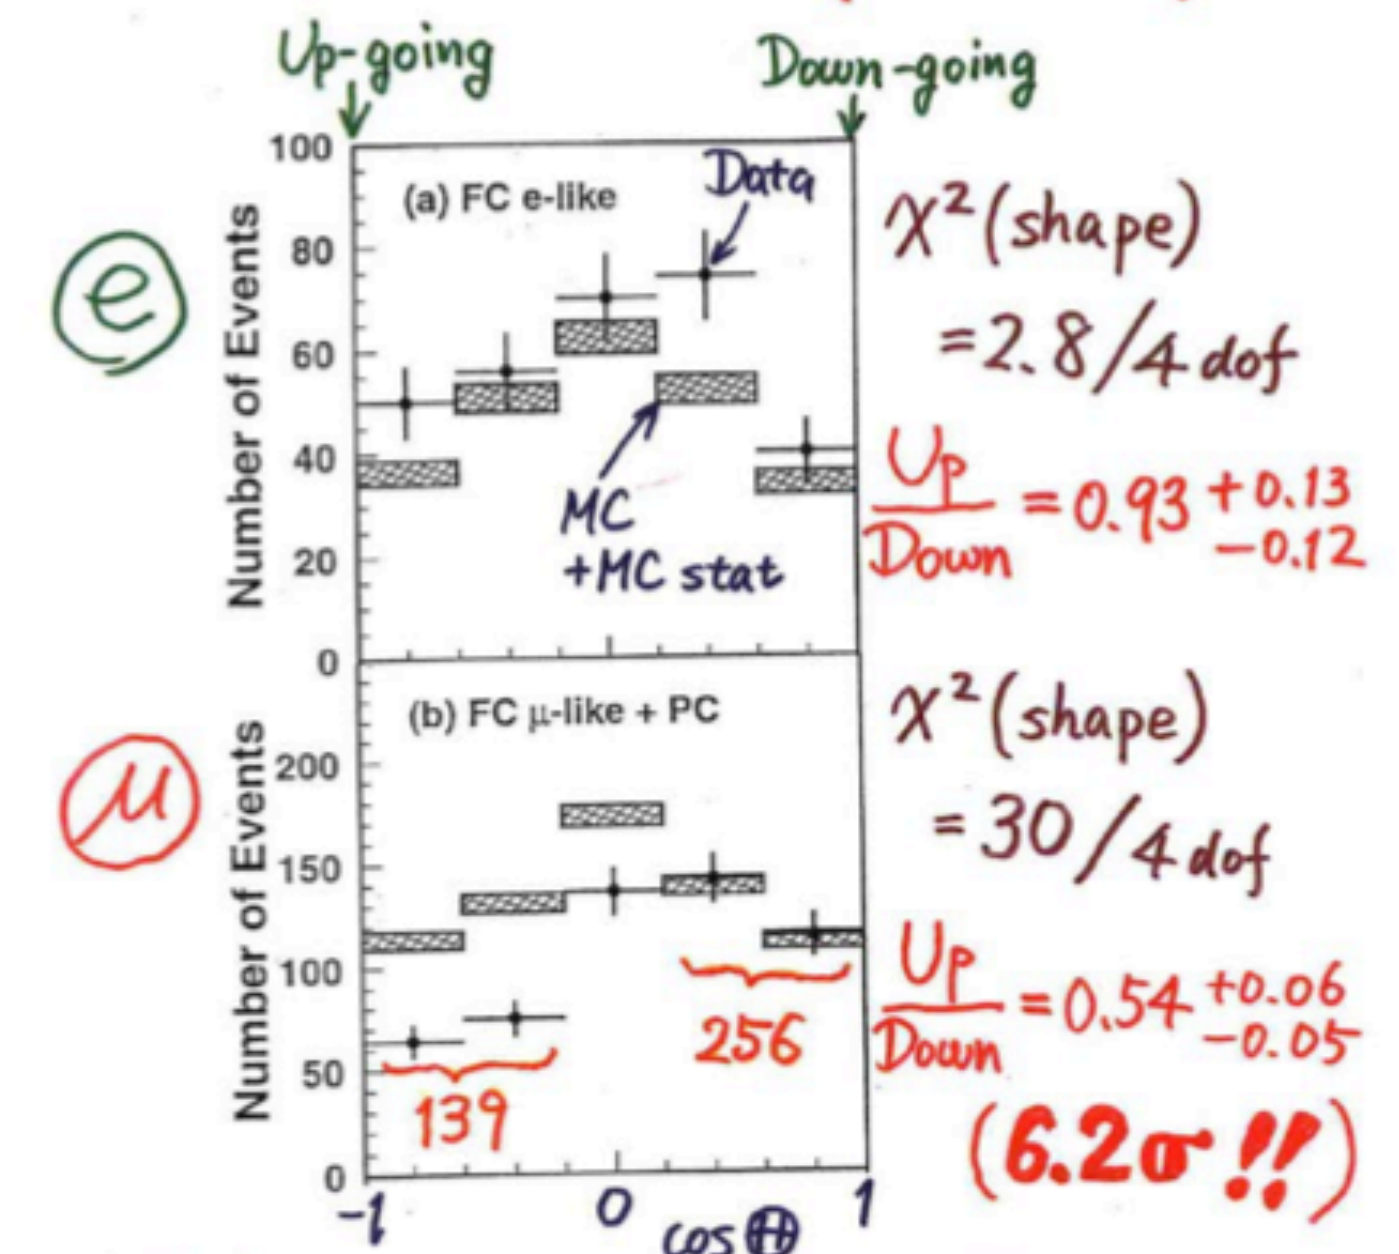 Up-going
Down-going
100
80
60
40
20
0
Number of Events
(a) FC e-like
Data
e
MC
+MC stat
χ² (shape)
= 2.8/4 dof
Up
Down
= 0.93 +0.13
−0.12
Number of Events
200
150
100
50
0
(b) FC μ-like + PC
μ
139
256
χ² (shape)
= 30/4 dof
Up
Down
= 0.54 +0.06
−0.05
(6.2σ !!)
-1
0
1
cos Θ